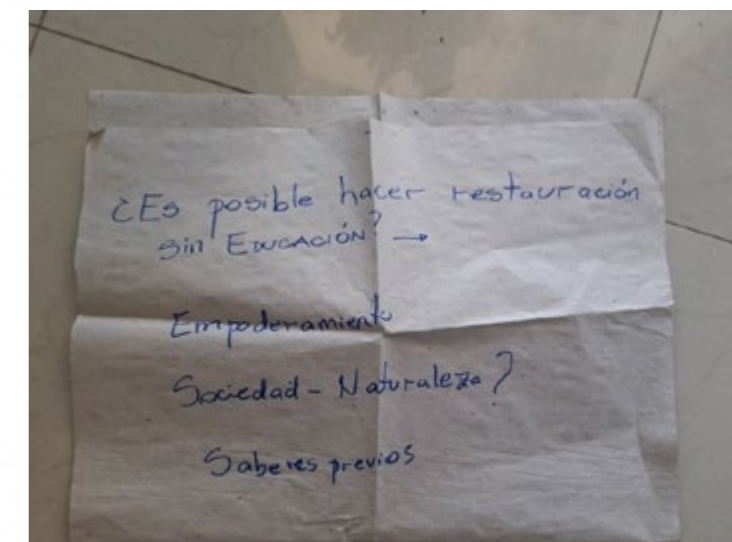 ¿Es posible hacer restauración
sin EDUCACIÓN? →
Empoderamiento
Sociedad - Naturaleza?
Saberes previos